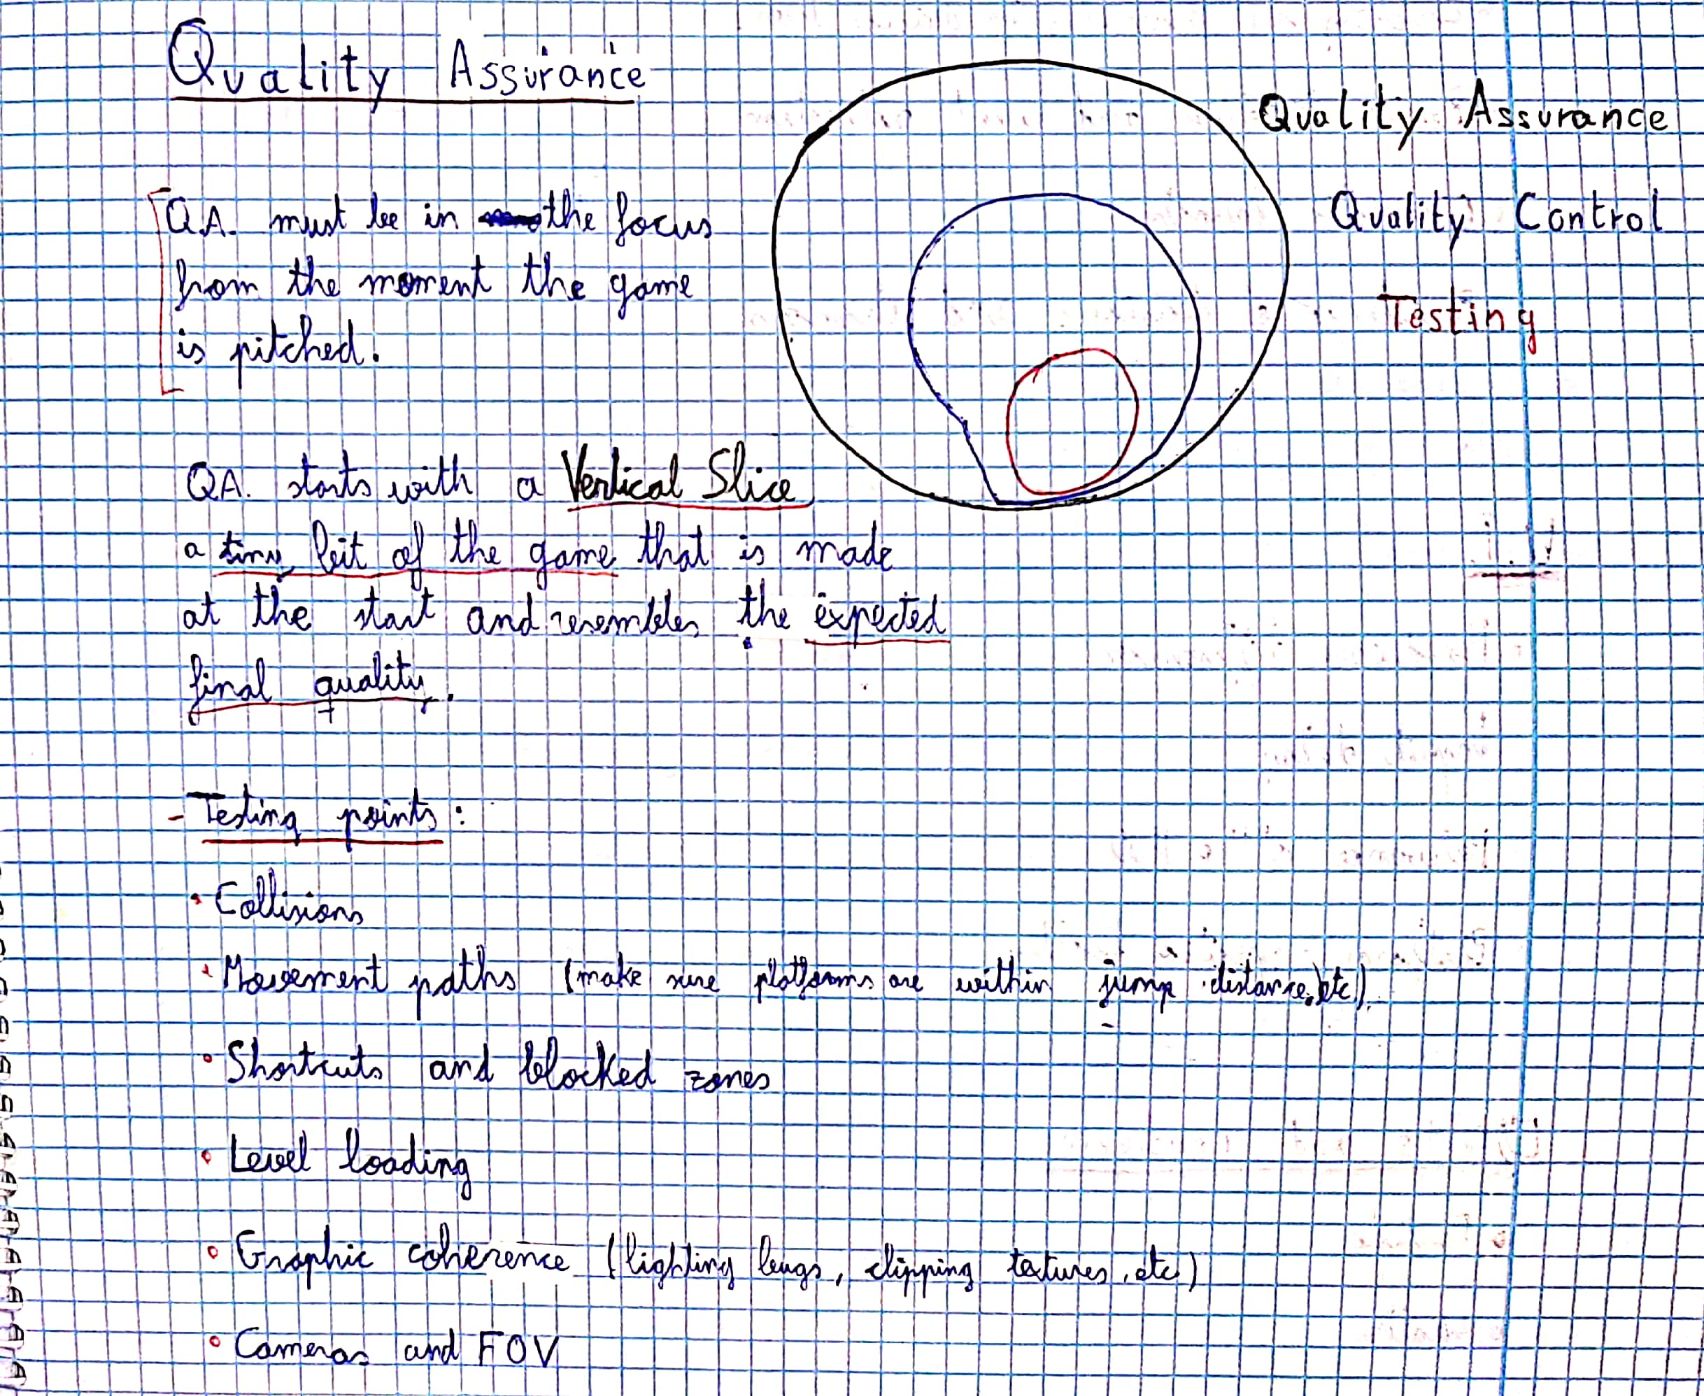 Quality Assurance
Quality Assurance
Quality Control
Testing
QA. must be in the focus
from the moment the game
is pitched.
QA. starts with a Vertical Slice,
a tiny bit of the game that is made
at the start and resembles the expected
final quality.
- Testing points:
• Collisions
• Movement paths (make sure platforms are within jump distance, etc)
• Shortcuts and blocked zones
• Level loading
• Graphic coherence (lighting bugs, clipping textures, etc)
• Cameras and FOV